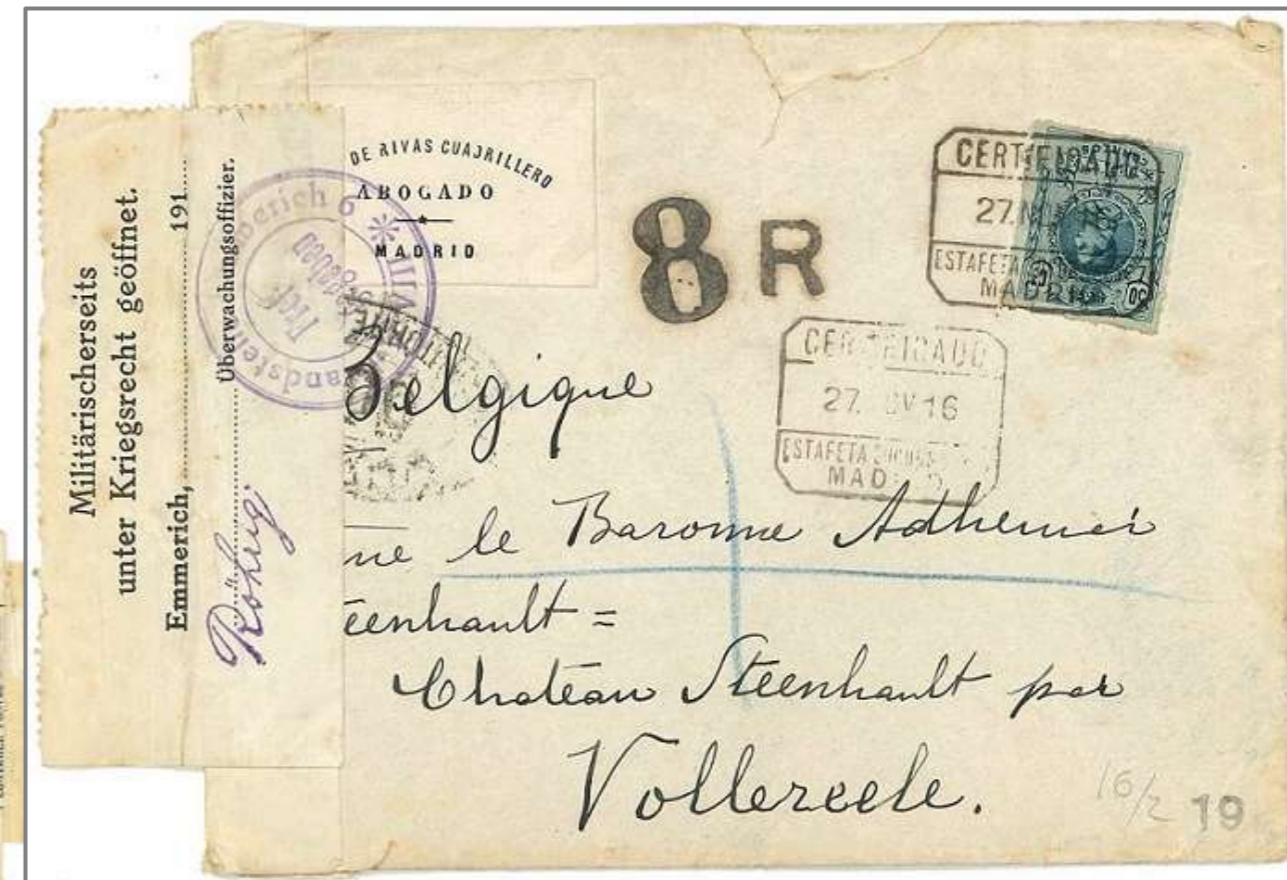 Militärischerseits
unter Kriegsrecht geöffnet.
Emmerich, 191
Überwachungsoffizier.
Röhrig
DE RIVAS CUADRILLERO
ABOGADO
MADRID
8 R
CERTIFICADO
27.
ESTAFETA
MADRI
30
CERTIFICADO
27. 16
ESTAFETA
MAD
Belgique
ne le Baronne Adhemer
eenhault =
Chateau Steenhault par
Vollezeele.
16/2 19